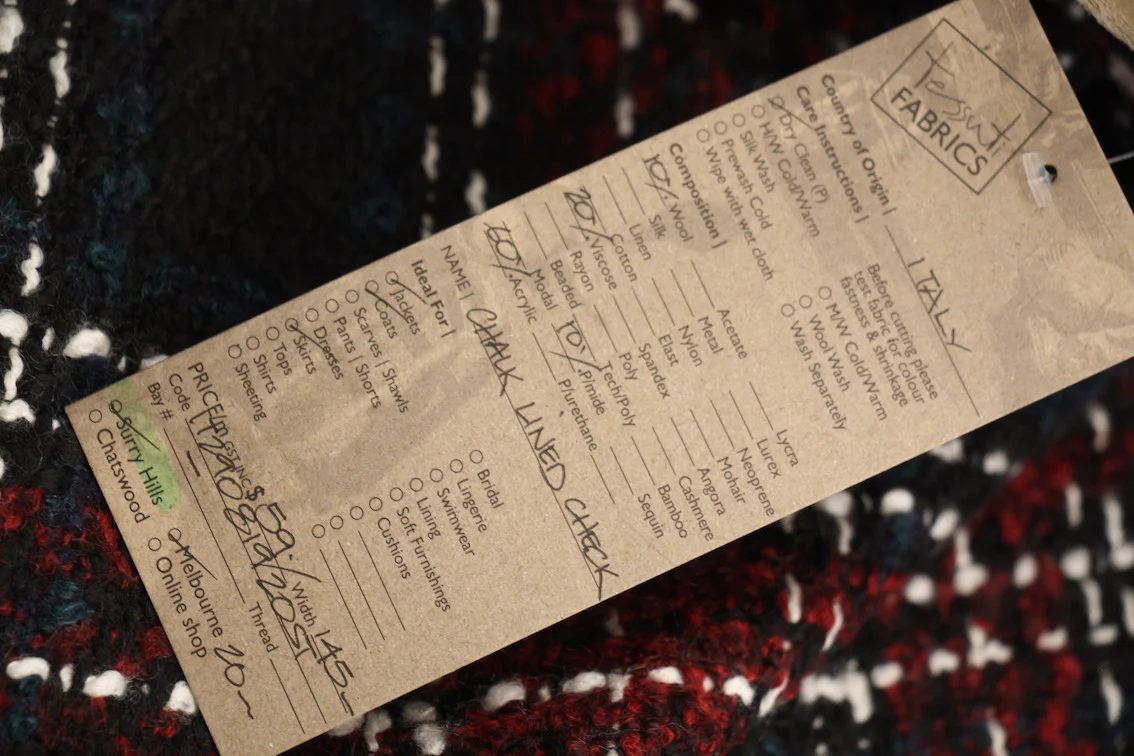 Tessuti
FABRICS
Country of Origin | ITALY
Care Instructions |
Dry Clean (P)
H/W Cold/Warm
Silk Wash
Prewash Cold
Wipe with wet cloth
Before cutting please
test fabric for colour
fastness & shrinkage
M/W Cold/Warm
Wool Wash
Wash Separately
Composition |
10% Wool
Silk
Linen
Cotton
20% Viscose
Rayon
Beaded
Modal
60% Acrylic
Acetate
Metal
Nylon
Elast
Spandex
Poly
Tech/Poly
10% P/mide
P/urethane
Lycra
Lurex
Neoprene
Mohair
Angora
Cashmere
Bamboo
Sequin
NAME | CHALK LINED CHECK
Ideal For |
Jackets
Coats
Scarves | Shawls
Pants | Shorts
Dresses
Skirts
Tops
Shirts
Sheeting
Bridal
Lingerie
Swimwear
Lining
Soft Furnishings
Cushions
PRICE $59 Width 145
Code
Bay # Thread
Surry Hills
Chatswood
Melbourne 20
Online shop